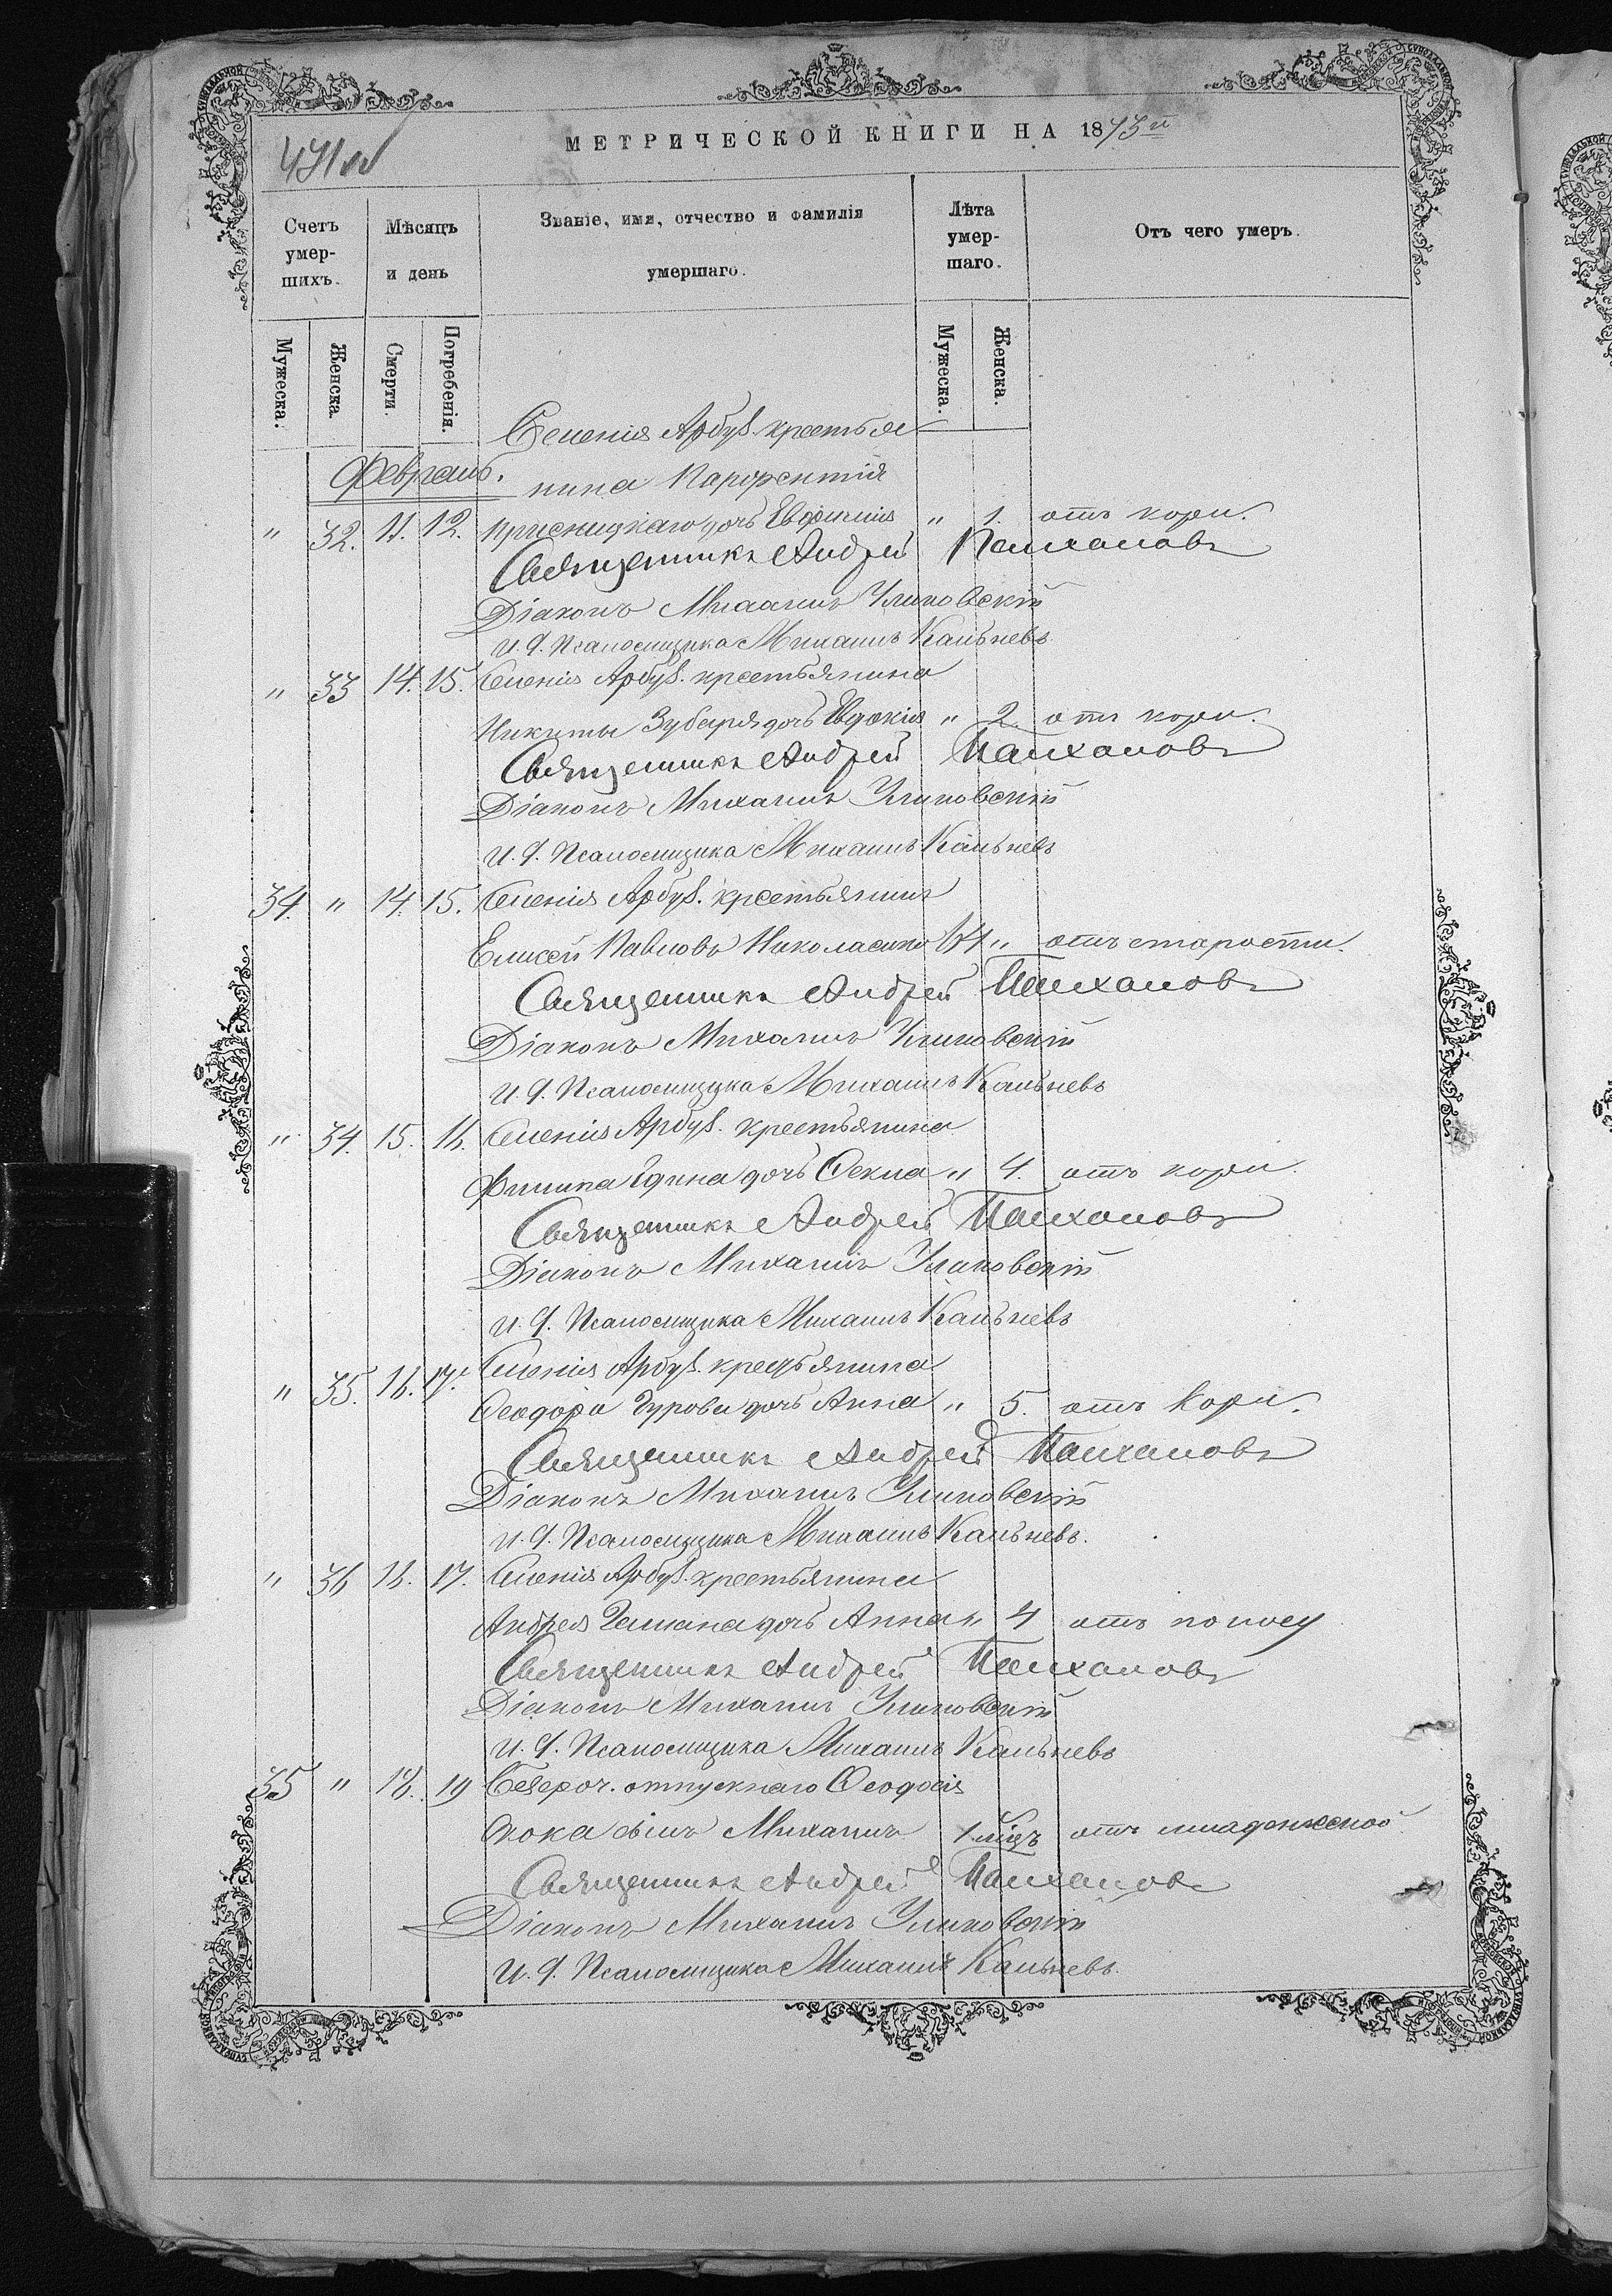 МЕТРИЧЕСКОЙ КНИГИ НА 1873й
Счетъ умер-шихъ.
Мѣсяцъ и день
Званіе, имя, отчество и фамилія умершаго.
Лѣта умер-шаго.
Отъ чего умеръ.
Мужеска.
Женска.
Смерти.
Погребенія.
Мужеска.
Женска.
Селенія Арбуз. крестья
Февраль. нина Парфентія
" 32. 11. 12. дочь Евфимія " 1. отъ кори.
Священникъ Андрей Палхаловъ
Діаконъ Михаилъ Улиховскій
И. д. Псаломщика Михаилъ Кальневъ
" 33 14. 15. Селенія Арбуз. крестьянина
Никиты Зубаря дочь Евдокія " 2 отъ кори.
Священникъ Андрей Палхаловъ
Діаконъ Михаилъ Улиховскій
И. д. Псаломщика Михаилъ Кальневъ
34. " 14. 15. Селенія Арбуз. крестьянинъ
Елисей Павловъ Николаенко 64 " отъ старости.
Священникъ Андрей Палхаловъ
Діаконъ Михаилъ Улиховскій
И. д. Псаломщика Михаилъ Кальневъ
" 34. 15. 16. Селенія Арбуз. крестьянина
Филипа Едина дочь Ѳекла " 4. отъ кори.
Священникъ Андрей Палхаловъ
Діаконъ Михаилъ Улиховскій
И. д. Псаломщика Михаилъ Кальневъ
" 35. 16. 17. Селенія Арбуз. крестьянина
Ѳеодора Гурова дочь Анна " 5. отъ кори.
Священникъ Андрей Палхаловъ
Діаконъ Михаилъ Улиховскій
И. д. Псаломщика Михаилъ Кальневъ.
" 36 16. 17. Селенія Арбуз. крестьянина
Андрея Галкана дочь Анна " 4 отъ поносу
Священникъ Андрей Палхаловъ
Діаконъ Михаилъ Улиховскій
И. д. Псаломщика Михаилъ Кальневъ
35 " 18. 19 Безсроч. отпускнаго Ѳеодосія
сынъ Михаилъ 1 мѣцъ отъ младенческой
Священникъ Андрей Палхаловъ
Діаконъ Михаилъ Улиховскій
И. д. Псаломщика Михаилъ Кальневъ.